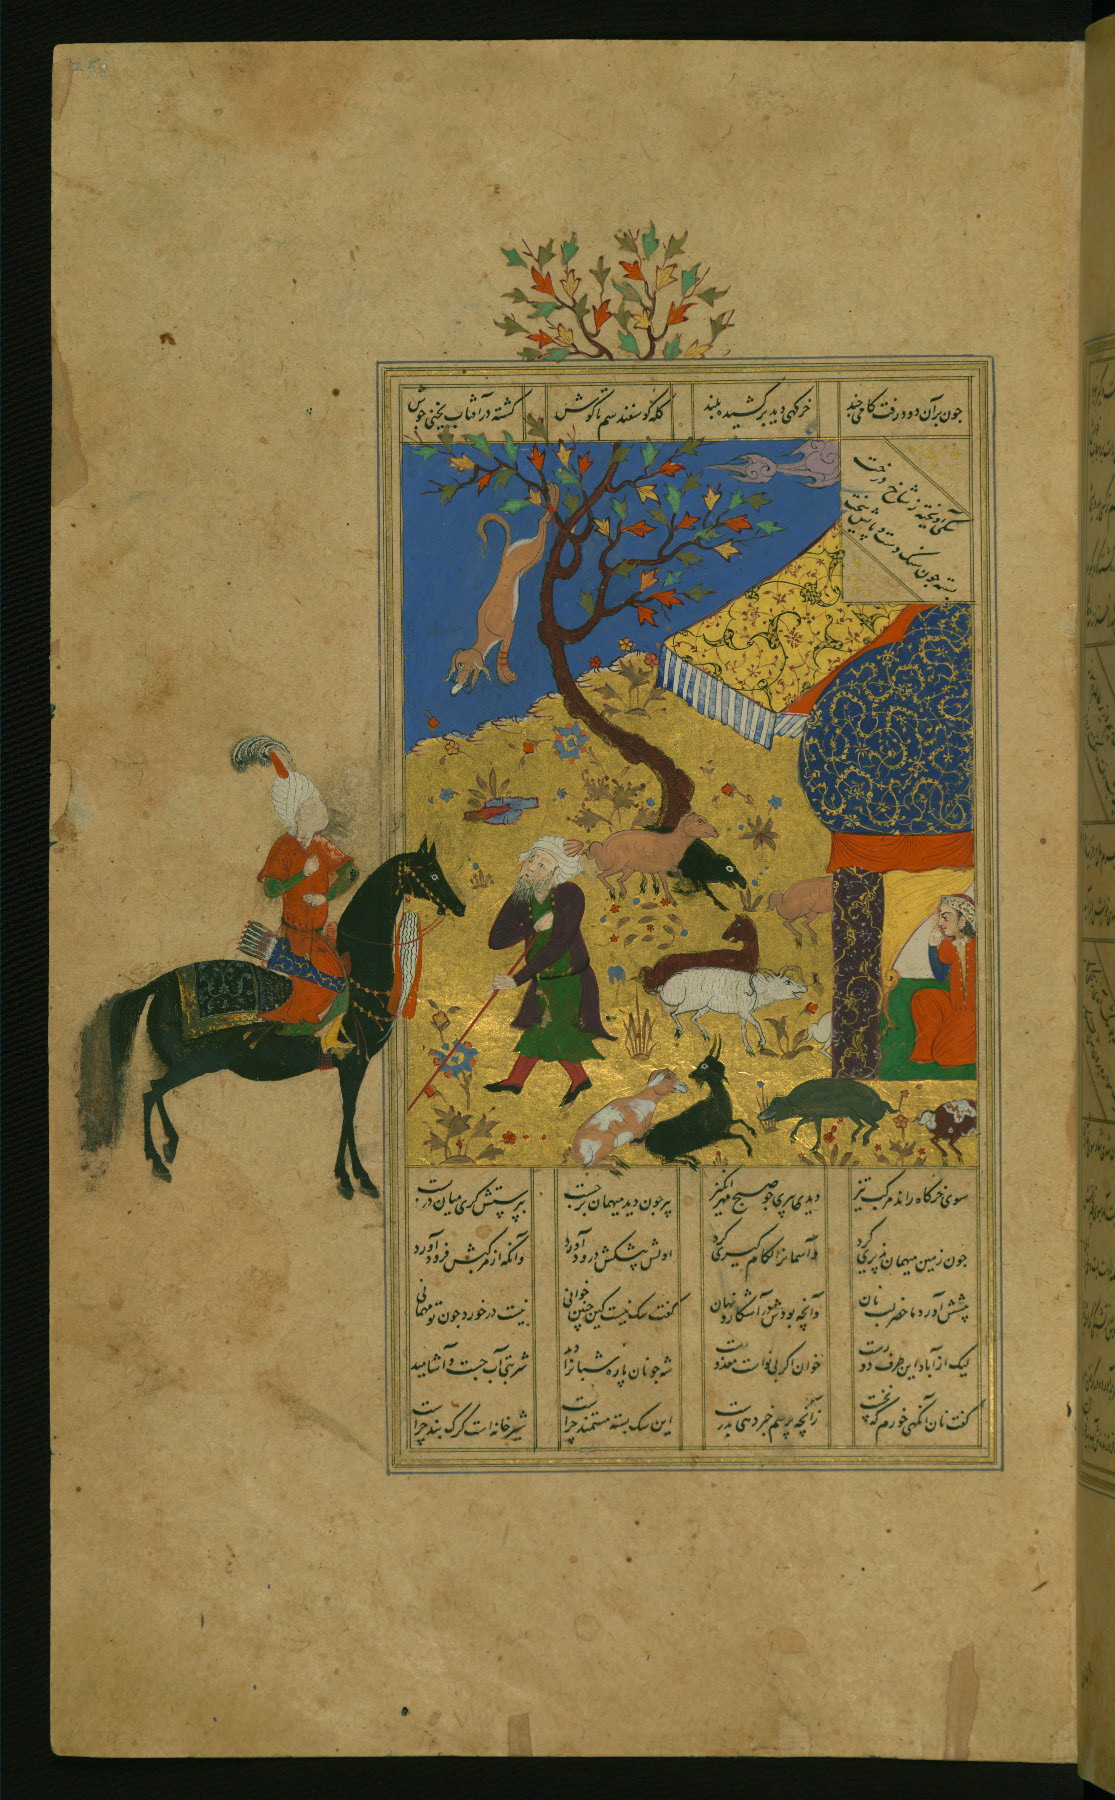 جون بر آن دود رفت کامی چند
خرکهی دید بر کشیده بلند
کله کوسفند سم تا کوش
کشته در آفتاب یخنی جوش
سکی آویخته ز شاخ درخت
بسته جون سنک دست و پایش سخت
سوی خرکاه راند مرکب تیز
دید پیری جو صبح مهرانکیز
پیر جون دید میهمان برجست
بپرستش کری میان دربست
جون زمین میهمان پذیری کرد
وآسمانرا لکام کیری کرد
اولش پیشکش درود آورد
وآنکه از مرکبش فرود آورد
پیشش آورد ماحضر لب نان
وآنجه بودش ز آشکار و نهان
کفت شک نیست کین جنین خوانی
نیست در خورد جون تو مهمانی
لیک از آباد این طرف دورست
خوان اکر بی نواست معذورست
شه جو نان پاره شبانرا دید
شربتی آب جست و آشامید
کفت نان آنکهی خورم که نخست
زآنجه پرسم خبر دهی بدرست
این سک بسته مستمند جراست
شیر خانه است کرک بند جراست